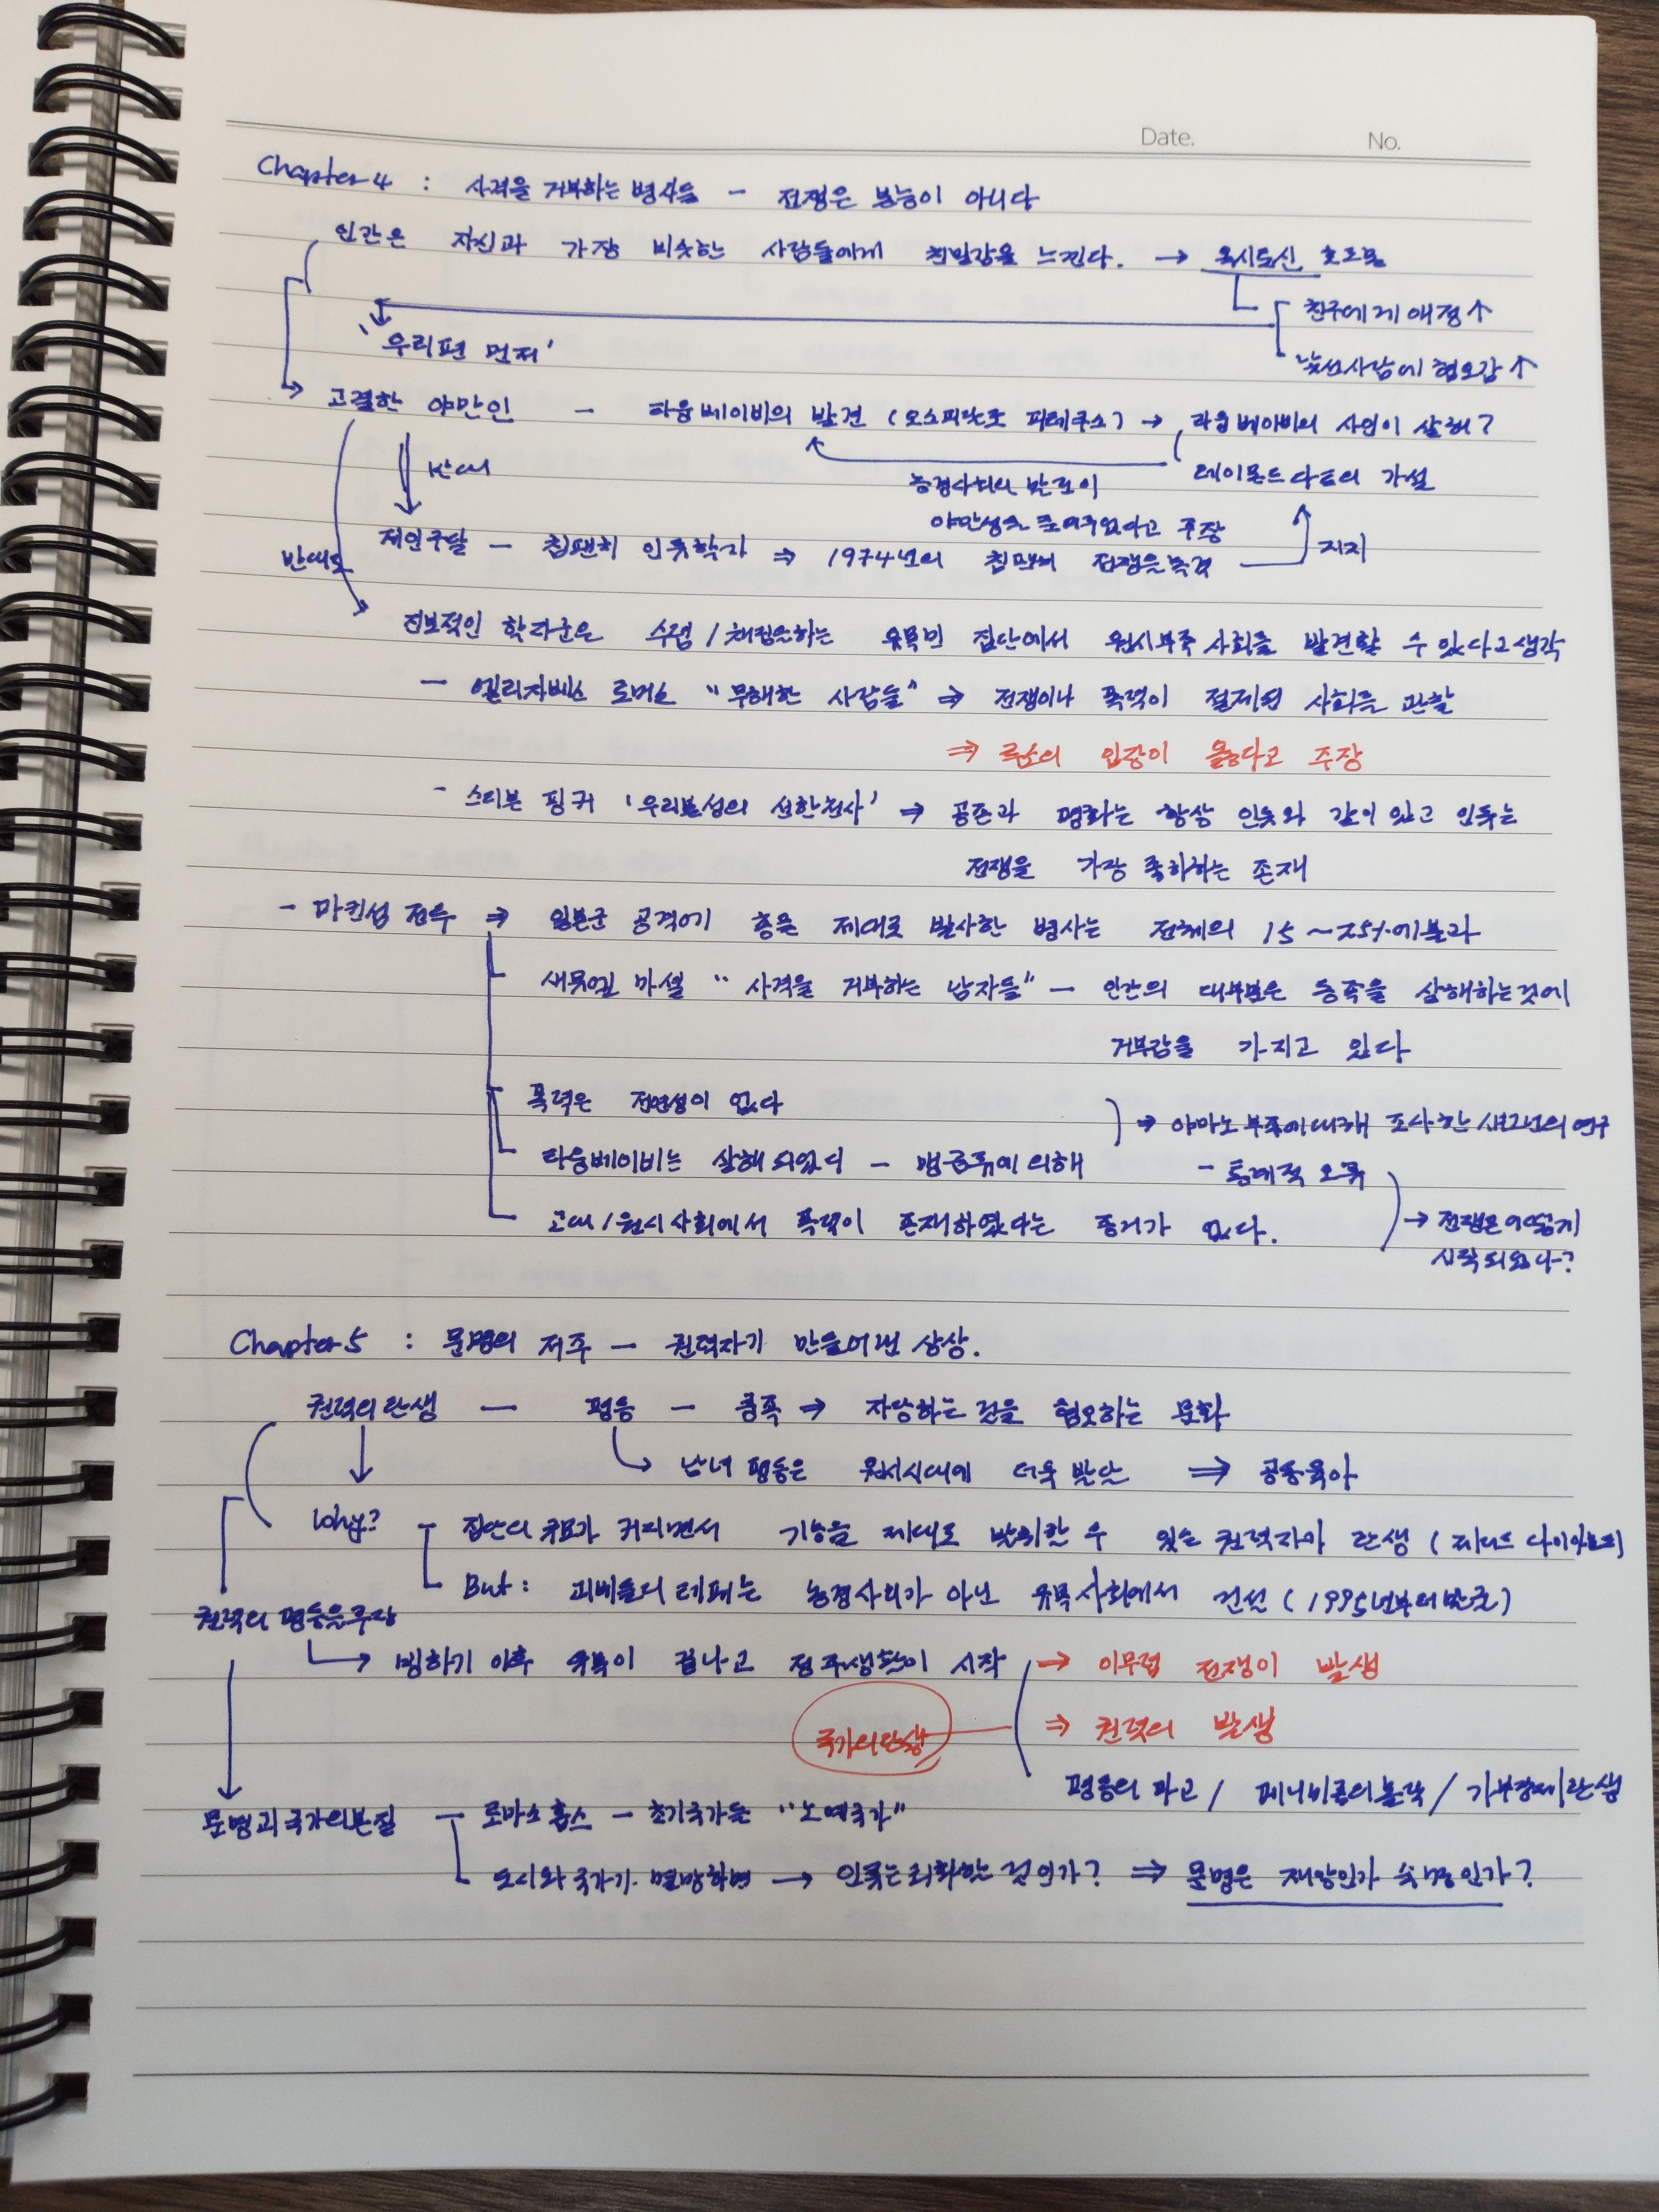 Date. No.
Chapter 4 : 사격을 거부하는 병사들 - 전쟁은 본능이 아니다
인간은 자신과 가장 비슷한 사람들에게 친밀감을 느낀다. → 옥시토신 호르몬
친구에게 애정↑
'우리편 먼저'
낯선사람에 혐오감↑
고결한 야만인 - 타웅베이비의 발견 (오스피랄로 피테쿠스) → 타웅베이비의 사인이 살해?
반대
농경사회의 발전이
레이몬드 다트의 가설
야만성을 줄여주었다고 주장
제인구달 - 침팬치 인류학자 ⇒ 1974년의 침팬치 전쟁을 목격
지지
반대로
진보적인 학자군은 수렵/채집을하는 유목민 집단에서 원시부족 사회를 발견할 수 있다고 생각
- 엘리자베스 토머스 "무해한 사람들" ⇒ 전쟁이나 폭력이 절제된 사회를 관찰
⇒ 루소의 입장이 옳다고 주장
- 스티븐 핑커 '우리본성의 선한천사' ⇒ 공존과 평화는 항상 인류와 같이 있고 인류는
전쟁을 가장 혹하하는 존재
- 마킨섬 전투 ⇒ 일본군 공격에 총을 제대로 발사한 병사는 전체의 15~25%에 불과
새뮤엘 마셜 "사격을 거부하는 남자들" - 인간의 대부분은 동족을 살해하는것에
거부감을 가지고 있다
폭력은 전염성이 없다
→ 야마노 부족에 대해 조사한 섀그넌의 연구
타웅베이비는 살해 되었다 - 맹금류에 의해
- 통계적 오류
고대/원시사회에서 폭력이 존재하였다는 증거가 없다.
→ 전쟁은 어떻게
시작되었나?
Chapter 5 : 문명의 저주 - 권력자가 만들어낸 상상.
권력의 탄생 - 평등 - 종족 ⇒ 자랑하는 것을 혐오하는 문화
남녀 평등은 원시시대에 더욱 발달 ⇒ 공동육아
Why? - 집단의 규모가 커지면서 기능을 제대로 발휘할 수 있는 권력자가 탄생 (제러드 다이아몬드)
But : 괴베클리 테페는 농경사회가 아닌 유목사회에서 건설 (1995년부터 발굴)
권력의 평등을 주장
빙하기 이후 유목이 끝나고 정주생활이 시작 ⇒ 이무렵 전쟁이 발생
국가의 탄생
⇒ 권력의 발생
평등의 파고 / 페니비롬의 몰락 / 가부장제 탄생
문명과 국가의 본질 - 토마스 홉스 - 초기국가는 "노예국가"
도시와 국가가 멸망하면 → 인류는 퇴화한 것인가? ⇒ 문명은 재앙인가 숙명인가?